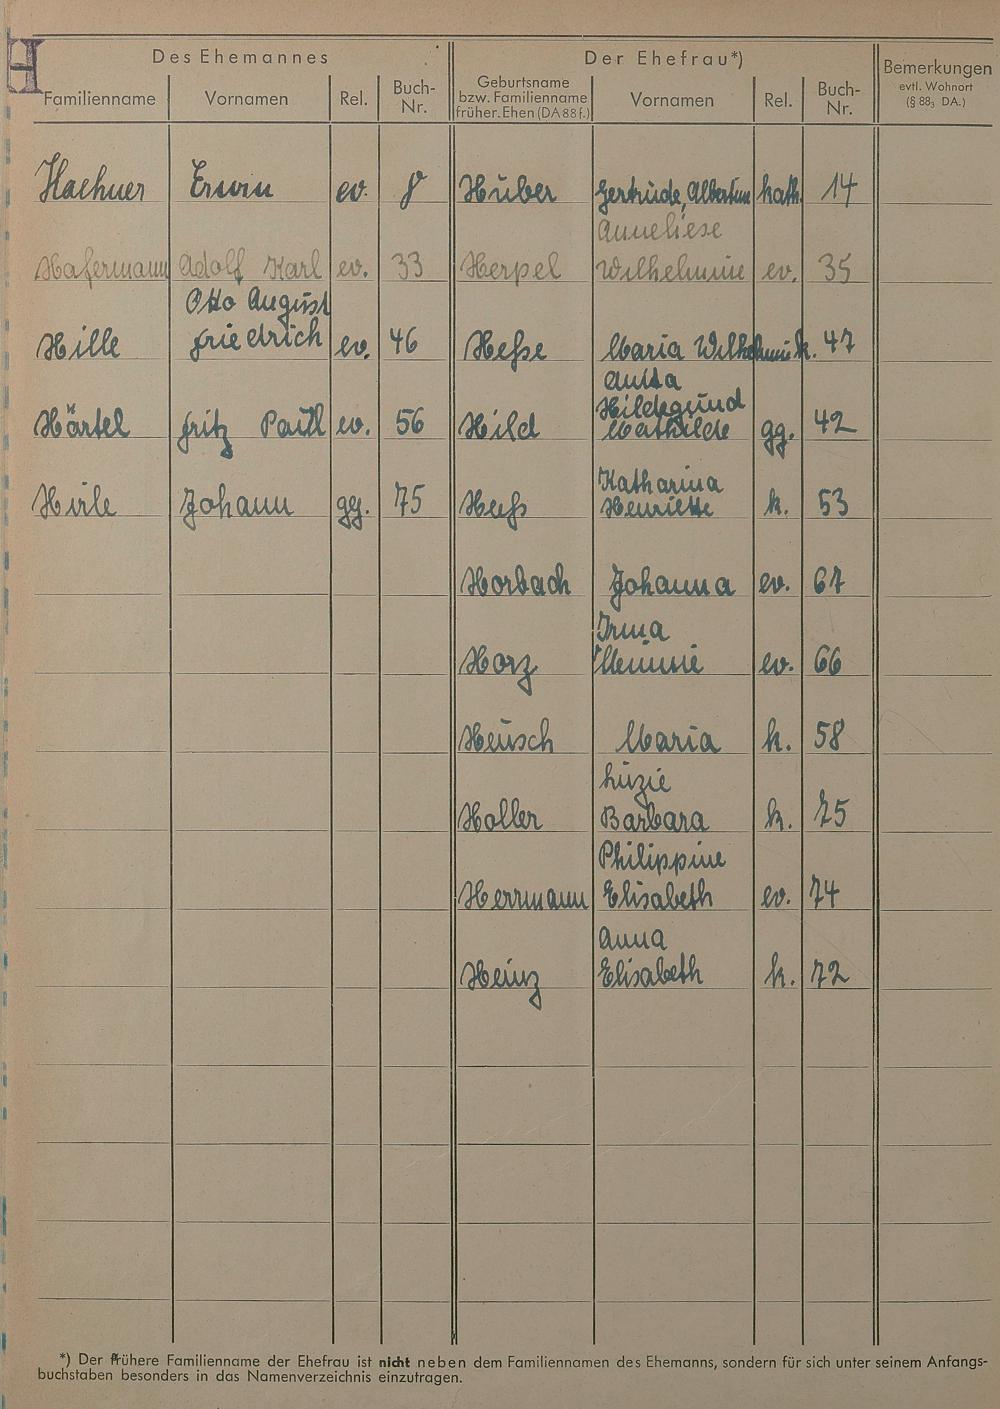 H
Des Ehemannes
Der Ehefrau*)
Bemerkungen
evtl. Wohnort
(§ 88, DA.)
Familienname Vornamen Rel. Buch-Nr.
Geburtsname
bzw. Familienname
früher. Ehen (DA 88 f.)
Vornamen Rel. Buch-Nr.
Haehner Erwin ev. 8 Huber Gertrude, Albertine kath. 14
Anneliese
Hafermann Adolf Karl ev. 33 Herpel Wilhelmine ev. 35
Otto August
Hille Friedrich ev. 46 Heße Maria Wilhelmine k. 47
Anita
Hildegund
Härtel Fritz Paul ev. 56 Hild Mathilde gg. 42
Katharina
Hirle Johann gg. 75 Heß Henriette k. 53
Horbach Johanna ev. 67
Irma
Horz Minnie ev. 66
Heusch Maria k. 58
Luzie
Holler Barbara k. 75
Philippine
Herrmann Elisabeth ev. 74
Anna
Heinz Elisabeth k. 72
*) Der frühere Familienname der Ehefrau ist nicht neben dem Familiennamen des Ehemanns, sondern für sich unter seinem Anfangs-
buchstaben besonders in das Namenverzeichnis einzutragen.